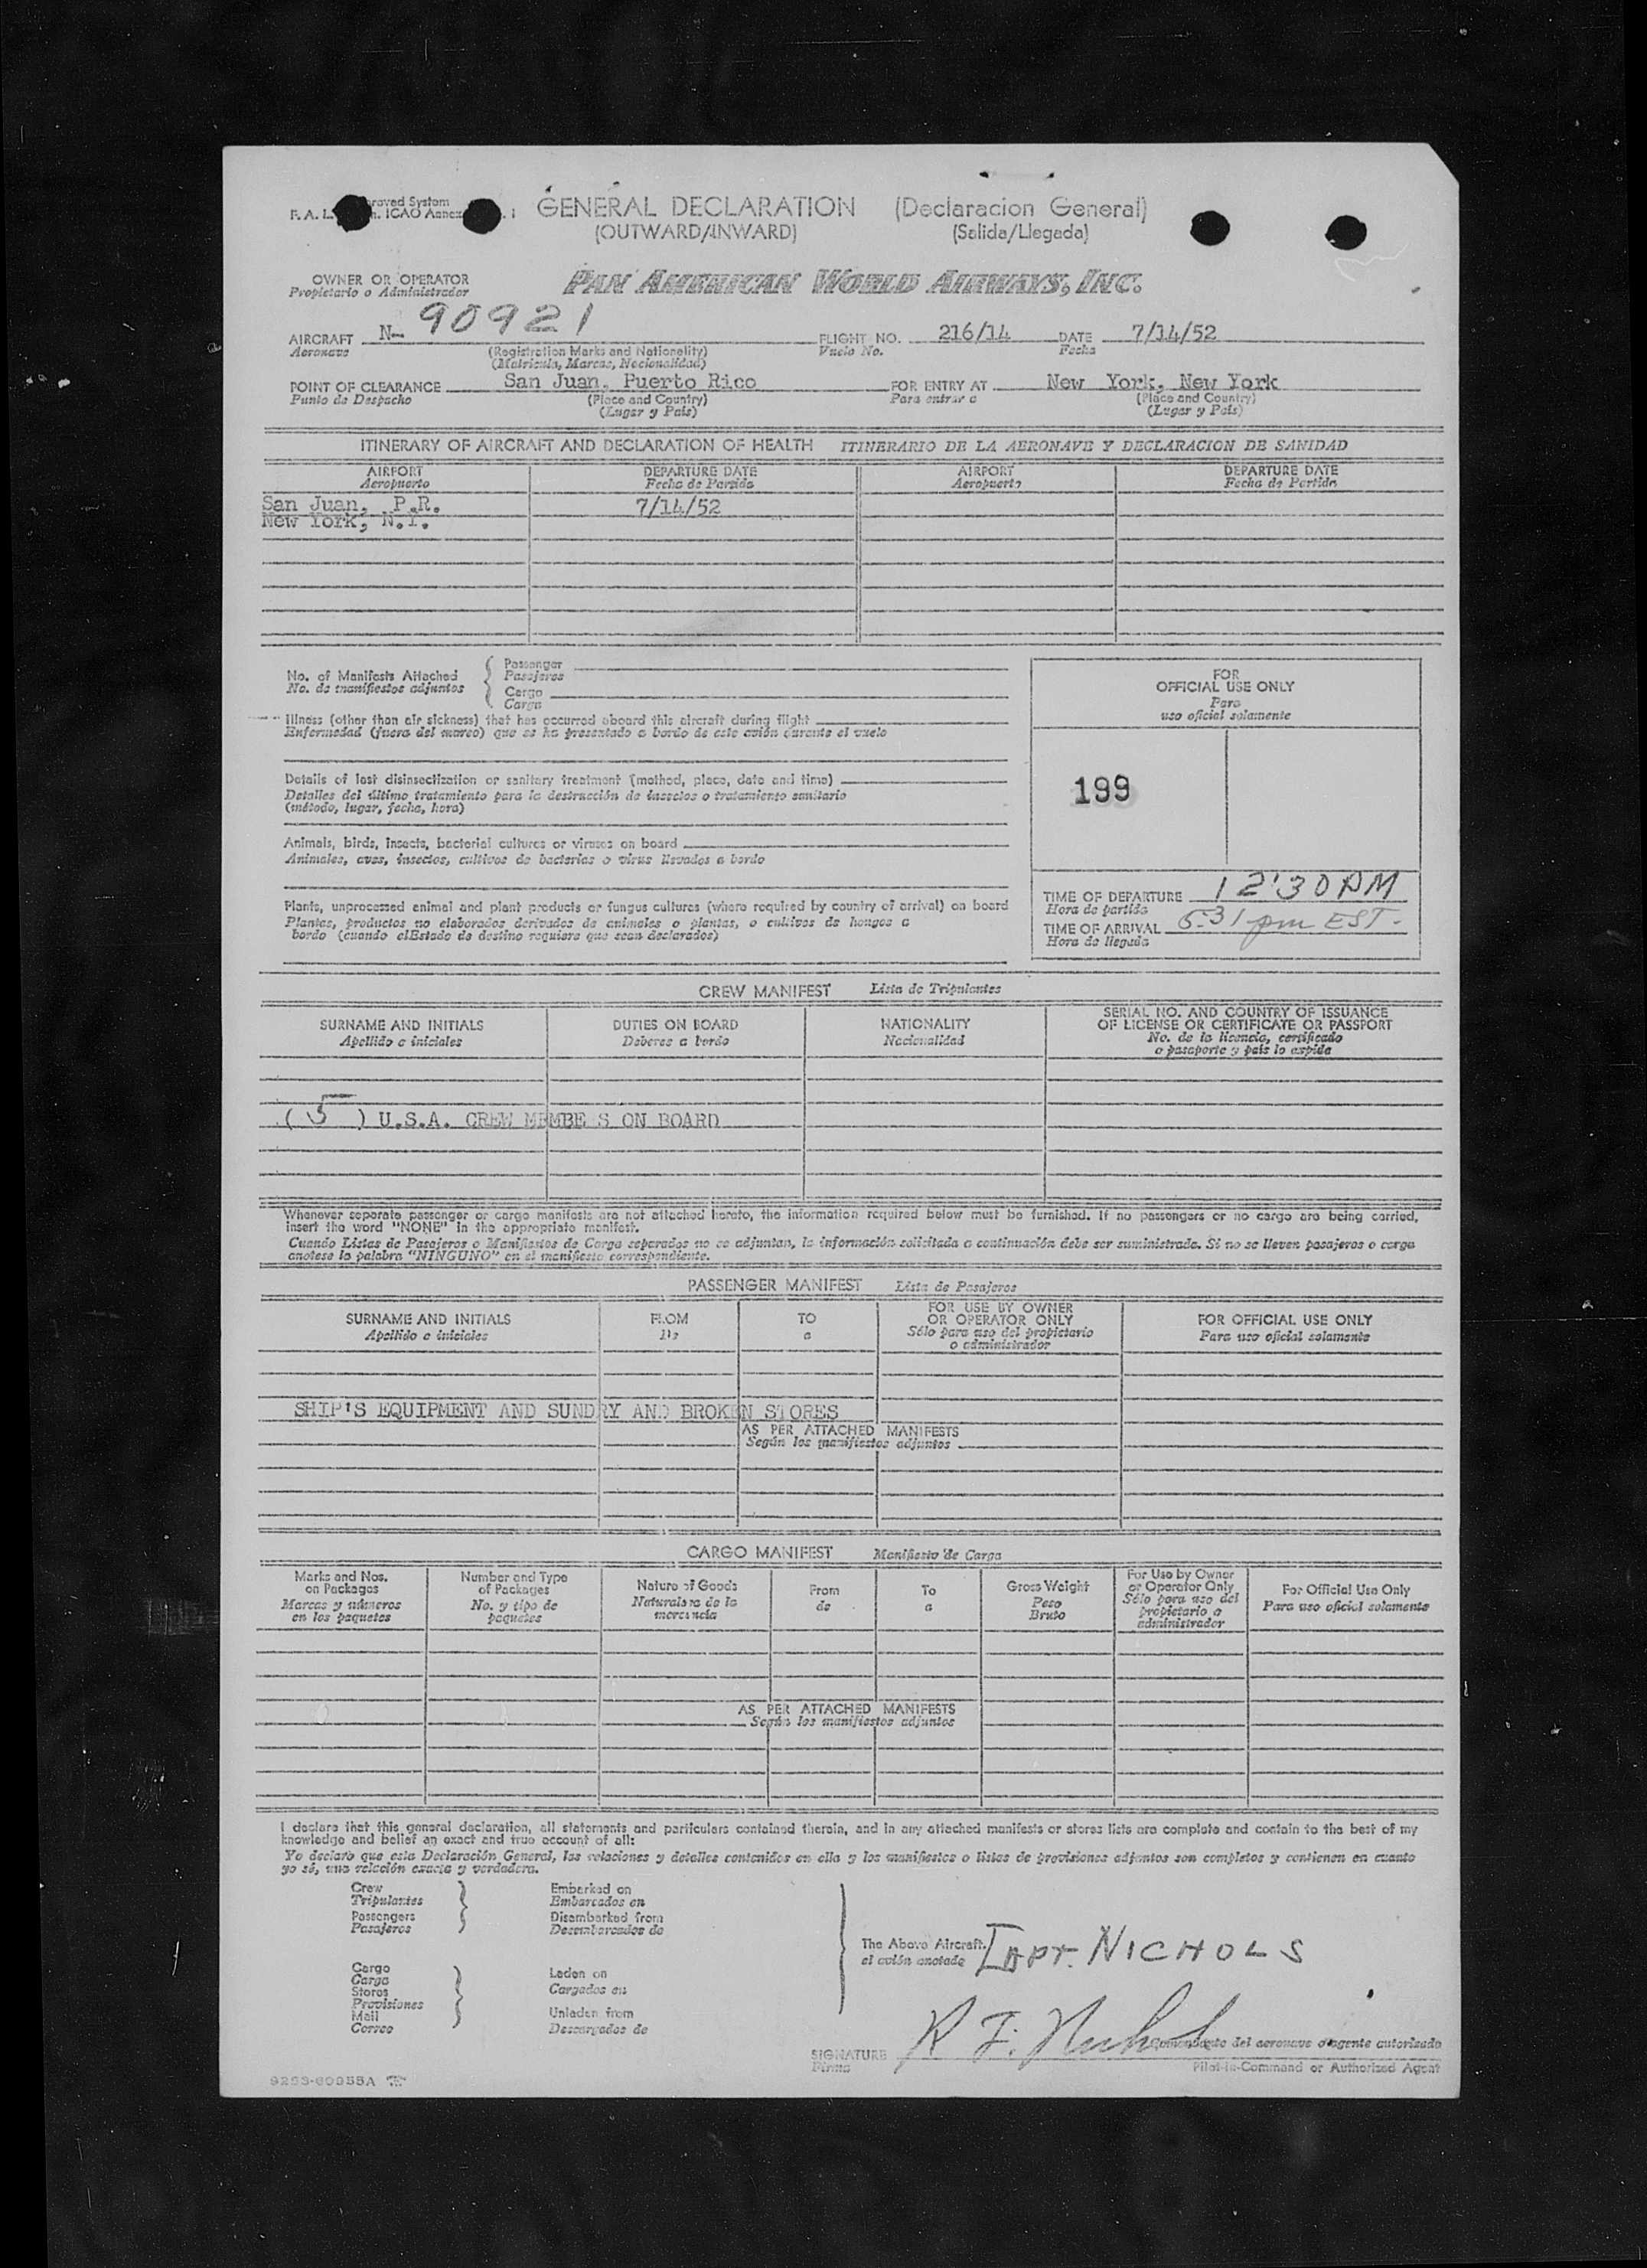 GENERAL DECLARATION (Declaracion General)
(OUTWARD/INWARD) (Salida/Llegada)
OWNER OR OPERATOR PAN AMERICAN WORLD AIRWAYS, INC.
Propietario o Administrador
AIRCRAFT N- 90921 FLIGHT NO. 216/14 DATE 7/14/52
Aeronave (Registration Marks and Nationality) Vuelo No. Fecha
(Matricula, Marcas, Nacionalidad)
POINT OF CLEARANCE San Juan, Puerto Rico FOR ENTRY AT New York, New York
Punto de Despacho (Place and Country) Para entrar a (Place and Country)
(Lugar y País) (Lugar y País)
ITINERARY OF AIRCRAFT AND DECLARATION OF HEALTH ITINERARIO DE LA AERONAVE Y DECLARACION DE SANIDAD
AIRPORT DEPARTURE DATE AIRPORT DEPARTURE DATE
Aeropuerto Fecha de Partida Aeropuerto Fecha de Partida
San Juan, P.R. 7/14/52
New York, N.Y.
No. of Manifests Attached Passenger
No. de manifiestos adjuntos Pasajeros
Cargo
Carga
Illness (other than air sickness) that has occurred aboard this aircraft during flight
Enfermedad (fuera del mareo) que se ha presentado a bordo de este avión durante el vuelo
Details of last disinsectization or sanitary treatment (method, place, date and time)
Detalles del último tratamiento para la destrucción de insectos o tratamiento sanitario
(método, lugar, fecha, hora)
Animals, birds, insects, bacterial cultures or viruses on board
Animales, aves, insectos, cultivos de bacterias o virus llevados a bordo
Plants, unprocessed animal and plant products or fungus cultures (where required by country of arrival) on board
Plantas, productos no elaborados derivados de animales o plantas, o cultivos de hongos a
bordo (cuando elEstado de destino requiera que sean declarados)
FOR
OFFICIAL USE ONLY
Para
uso oficial solamente
199
TIME OF DEPARTURE 12:30PM
Hora de partida
TIME OF ARRIVAL 5:31 pm EST-
Hora de llegada
CREW MANIFEST Lista de Tripulantes
SURNAME AND INITIALS DUTIES ON BOARD NATIONALITY SERIAL NO. AND COUNTRY OF ISSUANCE
OF LICENSE OR CERTIFICATE OR PASSPORT
Apellido e iniciales Deberes a bordo Nacionalidad No. de la licencia, certificado
o pasaporte y pais lo expide
( 5 ) U.S.A. CREW MEMBE S ON BOARD
Whenever separate passenger or cargo manifests are not attached hereto, the information required below must be furnished. If no passengers or no cargo are being carried,
insert the word "NONE" in the appropriate manifest.
Cuando Listas de Pasajeros o Manifiestos de Carga separados no se adjuntan, la información solicitada a continuación debe ser suministrada. Si no se llevan pasajeros o carga
anotese la palabra "NINGUNO" en el manifiesto correspondiente.
PASSENGER MANIFEST Lista de Pasajeros
SURNAME AND INITIALS FROM TO FOR USE BY OWNER
OR OPERATOR ONLY FOR OFFICIAL USE ONLY
Apellido e iniciales De a Sólo para uso del propietario
o administrador Para uso oficial solamente
SHIP'S EQUIPMENT AND SUNDRY AND BROKEN STORES
AS PER ATTACHED MANIFESTS
Según los manifiestos adjuntos
CARGO MANIFEST Manifiesto de Carga
Marks and Nos.
on Packages
Marcas y números
en los paquetes
Number and Type
of Packages
No. y tipo de
paquetes
Nature of Goods
Naturaleza de la
mercancia
From
de
To
a
Gross Weight
Peso
Bruto
For Use by Owner
or Operator Only
Sólo para uso del
propietario o
administrador
For Official Use Only
Para uso oficial solamente
AS PER ATTACHED MANIFESTS
Según los manifiestos adjuntos
I declare that this general declaration, all statements and particulars contained therein, and in any attached manifests or stores lists are complete and contain to the best of my
knowledge and belief an exact and true account of all:
Yo declaro que esta Declaración General, las relaciones y detalles contenidos en ella y los manifiestos o listas de provisiones adjuntos son completos y contienen en cuanto
yo sé, una relación exacta y verdadera.
Crew
Tripulantes
Passengers
Pasajeros
Embarked on
Embarcados en
Disembarked from
Desembarcados de
Cargo
Carga
Stores
Provisiones
Mail
Correo
Laden on
Cargados en
Unladen from
Descargados de
The Above Aircraft. CAPT. NICHOLS
el avión anotado
SIGNATURE R F. Nichols
Firma
Comandante del aeronave o agente autorizado
Pilot-in-Command or Authorized Agent